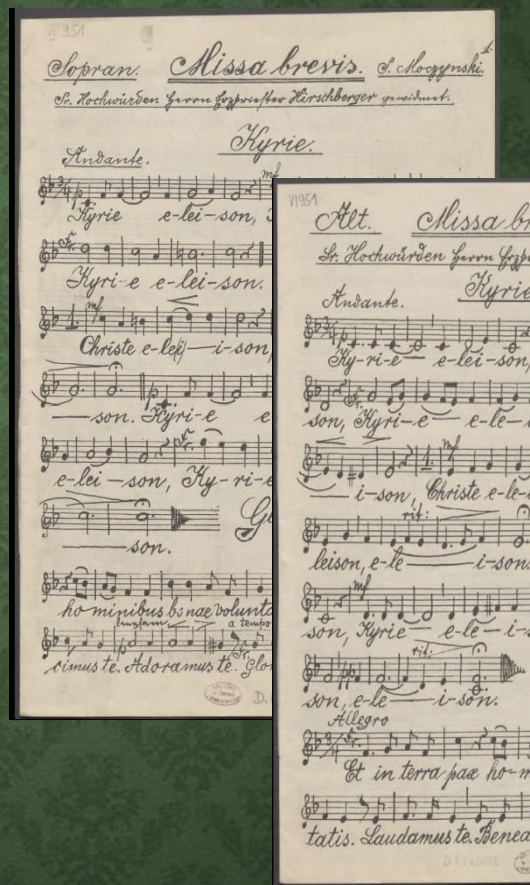 VI 951
1.
Sopran. Missa brevis. S. Moczynski.
Sr. Hochwürden Herrn Erzpriester Hirschberger gewidmet.
Kyrie.
Andante.
mf
Kyrie e-lei-son,
Fr.
Kyri-e e-lei-son.
mf
Christe e-lei-i-son,
son. Kyri-e e
Fr.
e-lei-son, Ky-ri-e
Gl
son.
hominibus bonae volunta
langsam a tempo
Fr.
cimus te. Adoramus te. Glo
D.
VI 951
Alt. Missa br
Sr. Hochwürden Herrn Erzpr
Kyrie
Andante.
Ky-ri-e e-lei-son,
Fr.
son, Kyri-e e-le-
mf
i-son, Christe e-le-
rit:
leison, e-le i-son.
mf
son, Kyrie e-le-i-
rit:
son, e-le-i-son.
Allegro
Fr.
Et in terra pax ho-m
tatis. Laudamus te. Bened